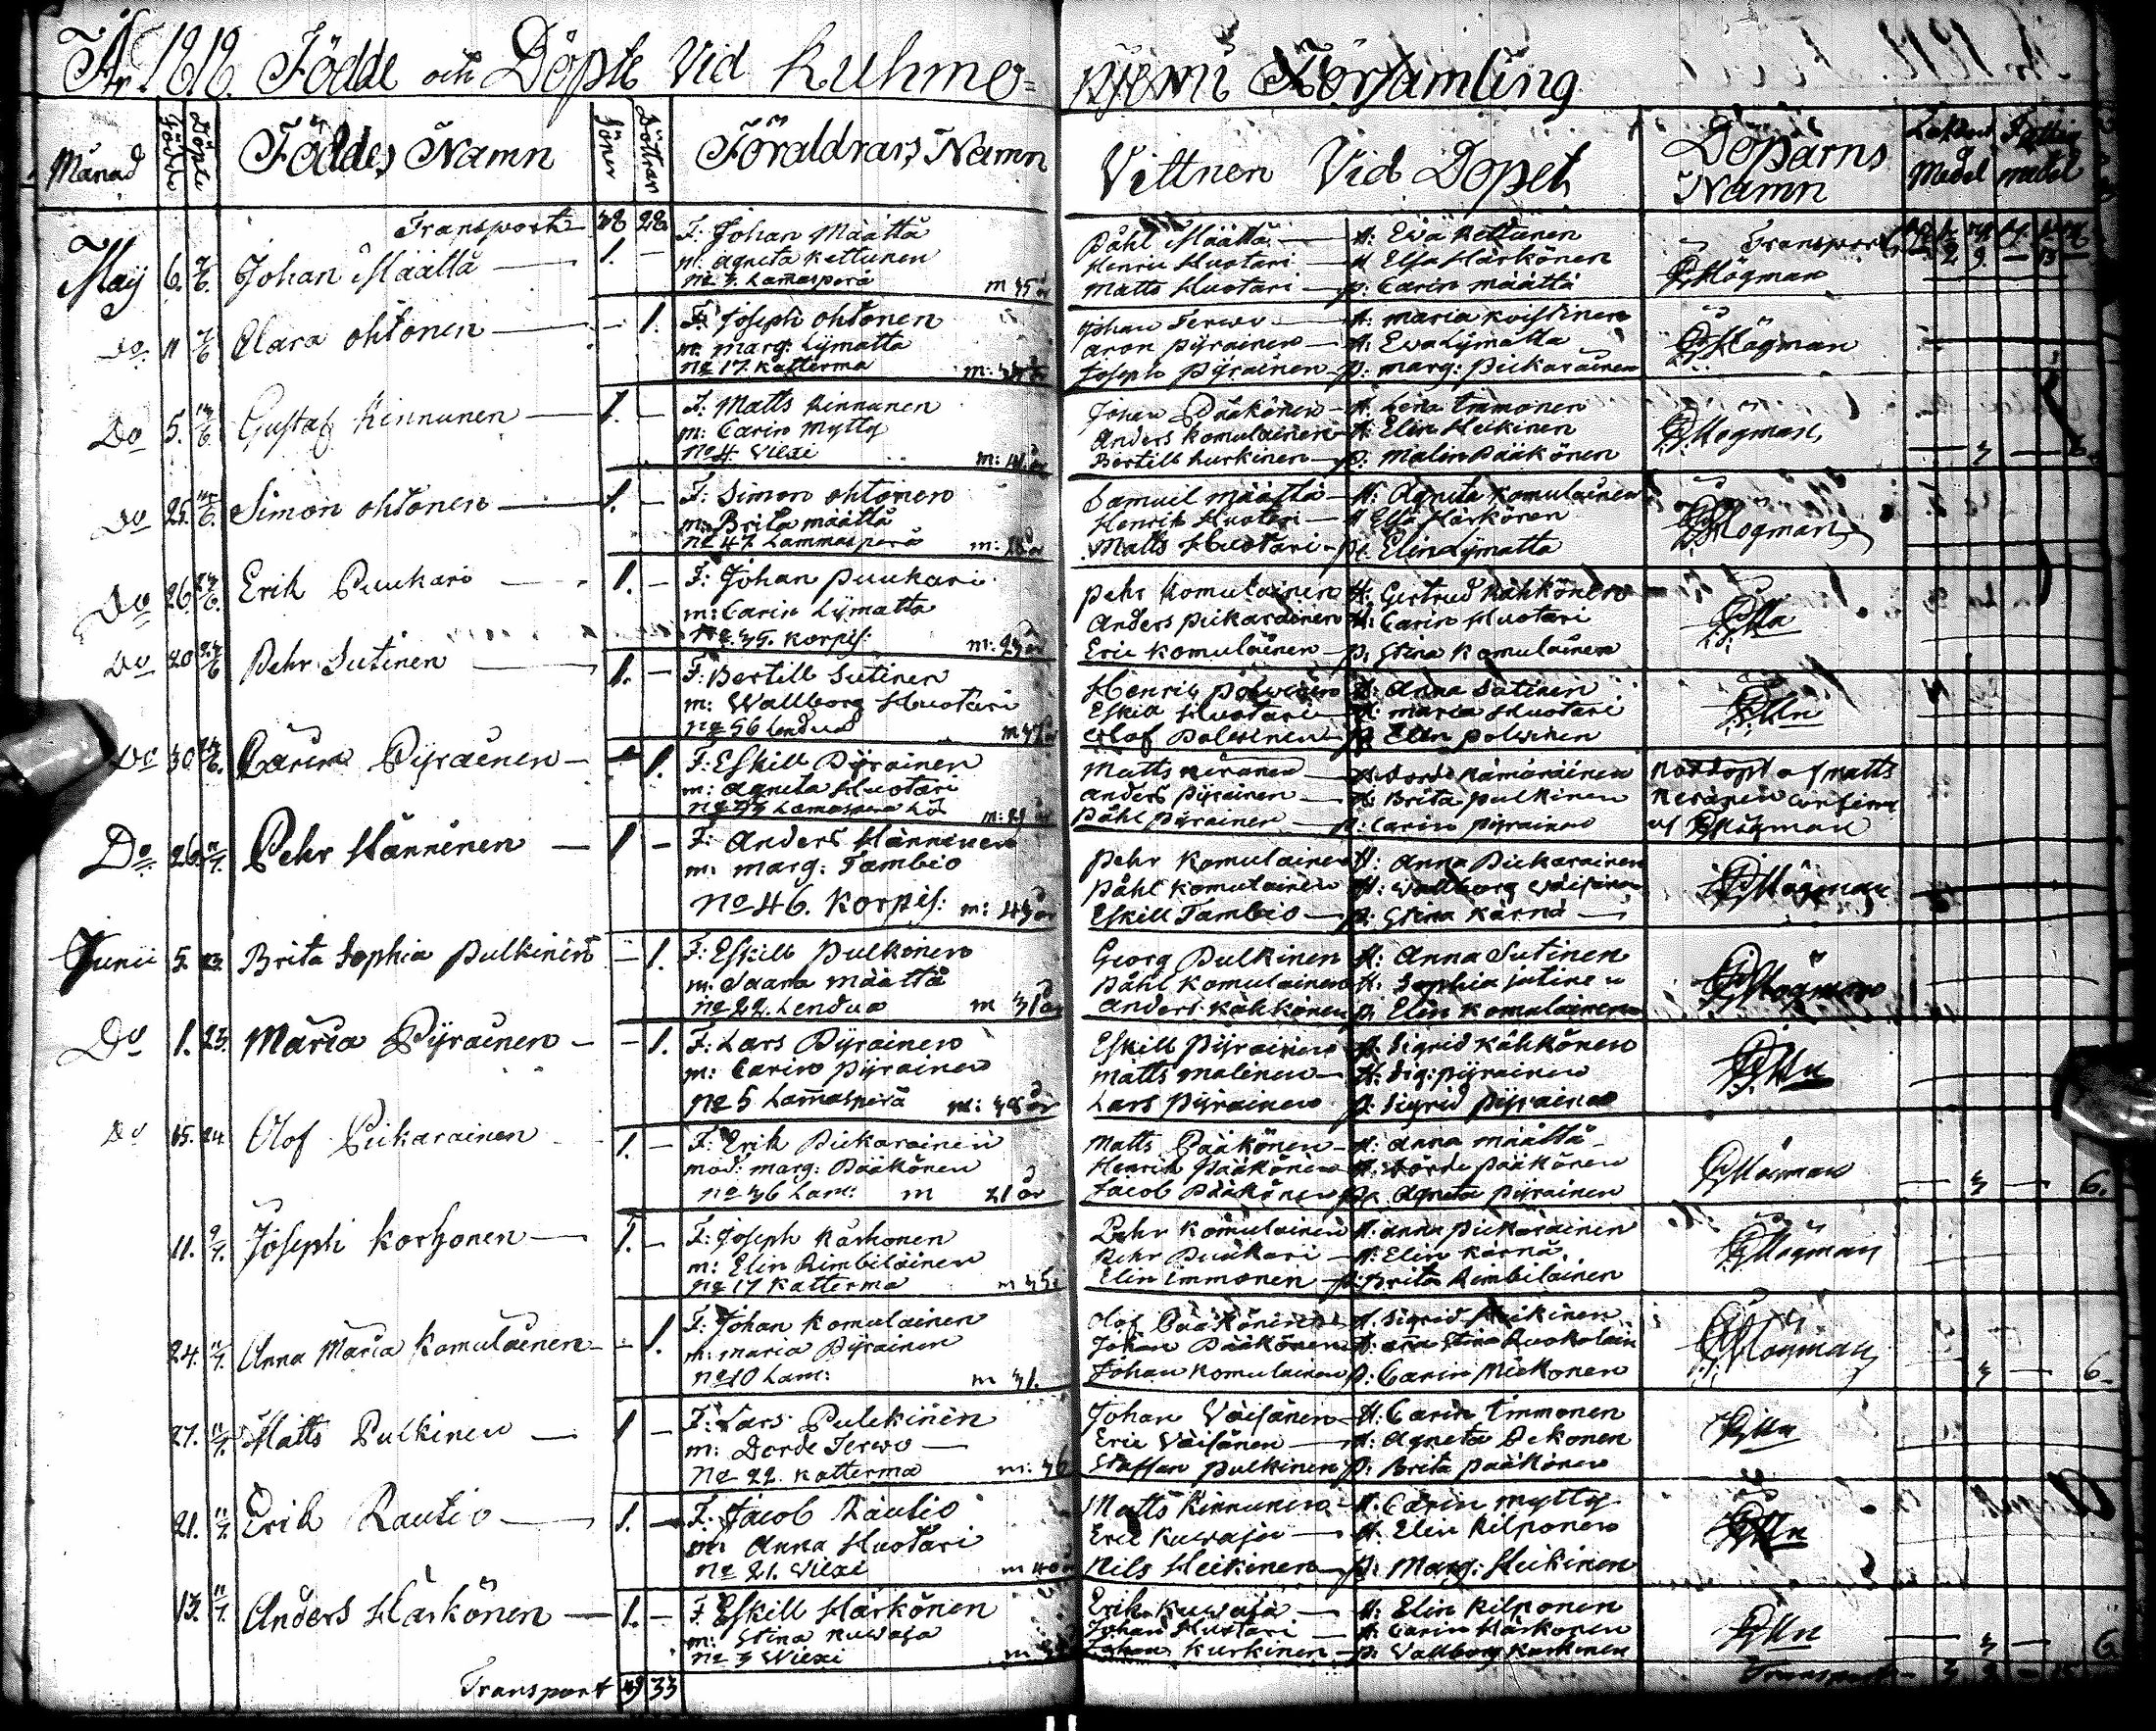 År 1818. Födde och Döpte Vid Kuhmo=
niemi Församling
Månad Födde Döpte Föddes Namn Söner Döttrar Föräldrars Namn
Vittnen Vid Dopet Döparns Namn
Transport 38 28
May 6. Johan Määttä 1. —
F: Johan Määttä
m: Agneta Kettunen
No 3. Lamasperä m 35 år
Påhl Määttä — H: Eva Kettunen
Henric Huotari — H Elsa Härkönen
Matts Huotari — p. Carin Määttä
Transport
Högman
Do 11 7/6 Clara Ohtonen — 1.
F: Joseph Ohtonen
m: Marg: Lymatta
No 17. Katterma
Johan Terwo — H: Maria Koistinen
Aron Pyrainen — H: Eva Lymatta
Joseph Pyräinen — p: Marg: Pickarainen
Högman
Do 5. Gustaf Kinnunen 1. —
F: Matts Kinnunen
m: Carin Mytty
No 4. Viexi
Johan Pääkönen — H. Lena Immonen
Anders Komulainen — H: Elin Heikinen
Bertill Kurkinen — p: Malin Pääkönen
Högman
Do 25. Simon Ohtonen 1. —
F: Simon Ohtonen
m: Brita Määttä
No 47. Lammasperä
Samuel Määttä — H: Agneta Komulainen
Henrik Huotari — H Elsa Härkönen
Matts Huotari — p: Elin Lymatta
Högman
Do 26. Erik Puukari 1. —
F: Johan Puukari
m: Carin Lymatta
No 35. Korpis: m: 23 år
Pehr Komulainen H: Gertrud Kähkönen
Anders Pickarainen H: Carin Huotari
Eric Komulainen — p. Stina Komulainen
Do 20 Pehr Sutinen 1. —
F: Bertill Sutinen
m: Wallborg Huotari
No 56 Lendua
H: Anna Sutinen
Eskil Huotari — H: Maria Huotari
Olof Polvinen — p. Elin Polvinen
Do 30. Carin Pyrainen — 1.
F: Eskill Pyrainen
m: Agneta Huotari
Matts Keränen
Anders Pyrainen — H: Brita Pulkinen
Påhl Pyrainen — p: Carin Pyrainen
Nöddöpt af Matts
Keränen
af Högman
Do 26. Pehr Hänninen 1 —
F: Anders Hänninen
m: Marg: Tambio
No 46. Korpis: m: 43 år
Pehr Komulainen H: Anna Pickarainen
Påhl Komulainen H: Wallborg Väisänen
Eskill Tambio — p: Stina Kärnä
Högman
Junii 5. 23. Brita Sophia Pulkinen — 1.
F: Eskill Pulkonen
m: Saara Määttä
No 22. Lendua m 31 år
Georg Pulkinen H: Anna Sutinen
Påhl Komulainen H: Sophia Sutinen
Anders Kähkönen p: Elin Komulainen
Högman
Do 1. 23. Maria Pyrainen — 1.
F: Lars Pyrainen
m: Carin Pyrainen
No 5 Lamasperä m: 38 år
Eskill Pyrainen H: Sigrid Kähkönen
Matts Malinen — H: Sig: Pyrainen
Lars Pyrainen p: Sigrid Pyrainen
Do 15. 24 Olof Pickarainen 1. —
F: Erik Pickarainen
mod: Marg: Pääkönen
No 36 Lam: m 21 år
Matts Pääkönen — H: Anna Määttä
Henrik Pääkönen H. Dorde Pääkönen
Jacob Pääkönen p: Agneta Pyrainen
Högman 6.
11. 9/7. Joseph Korhonen 1. —
F: Joseph Karhonen
m: Elin Rimbiläinen
No 17 Katterma
Pehr Komulainen H: Anna Pickarainen
Pehr Puukari — H: Elin Kärnä
Elin Immonen — p: Brita Rimbilainen
Högman
24. 11/7. Anna Maria Komulainen — 1.
F: Johan Komulainen
m: Maria Pyrainen
No 10 Lam: m 31.
Olof Pääkönen H. Sigrid Heikinen
Johan Pääkönen H: Anna Stina Ruokolain
Johan Komulainen p: Carin Mickonen
Högman 6
27. 11/7. Matts Pulkinen 1 —
F: Lars Pulckinen
m: Dorde Terwo —
No 22. Katterma m: 36
Johan Väisänen — H: Carin Immonen
Eric Väisänen — H: Agneta
Staffan Pulkinen p: Brita Pääkönen
21. 11/7. Erik Rautio 1. —
F: Jacob Rautio
m: Anna Huotari
No 21. Viexi m 40 år
Matts Kinnunen — H: Carin Mytty
Eric Kuvaja — H. Elin Kilponen
Nils Heikinen — p: Marg: Heikinen
13. 11/7. Anders Härkönen 1. —
F. Eskill Härkönen
m: Stina Kuvaja
No 3 Wiexi
Erik Kuwaja — H: Elin Kilponen
Johan Huotari — H: Carin Härkönen
Johan Kurkinen — p: Wallborg Kurkinen
6
Transport 49 33
Transport